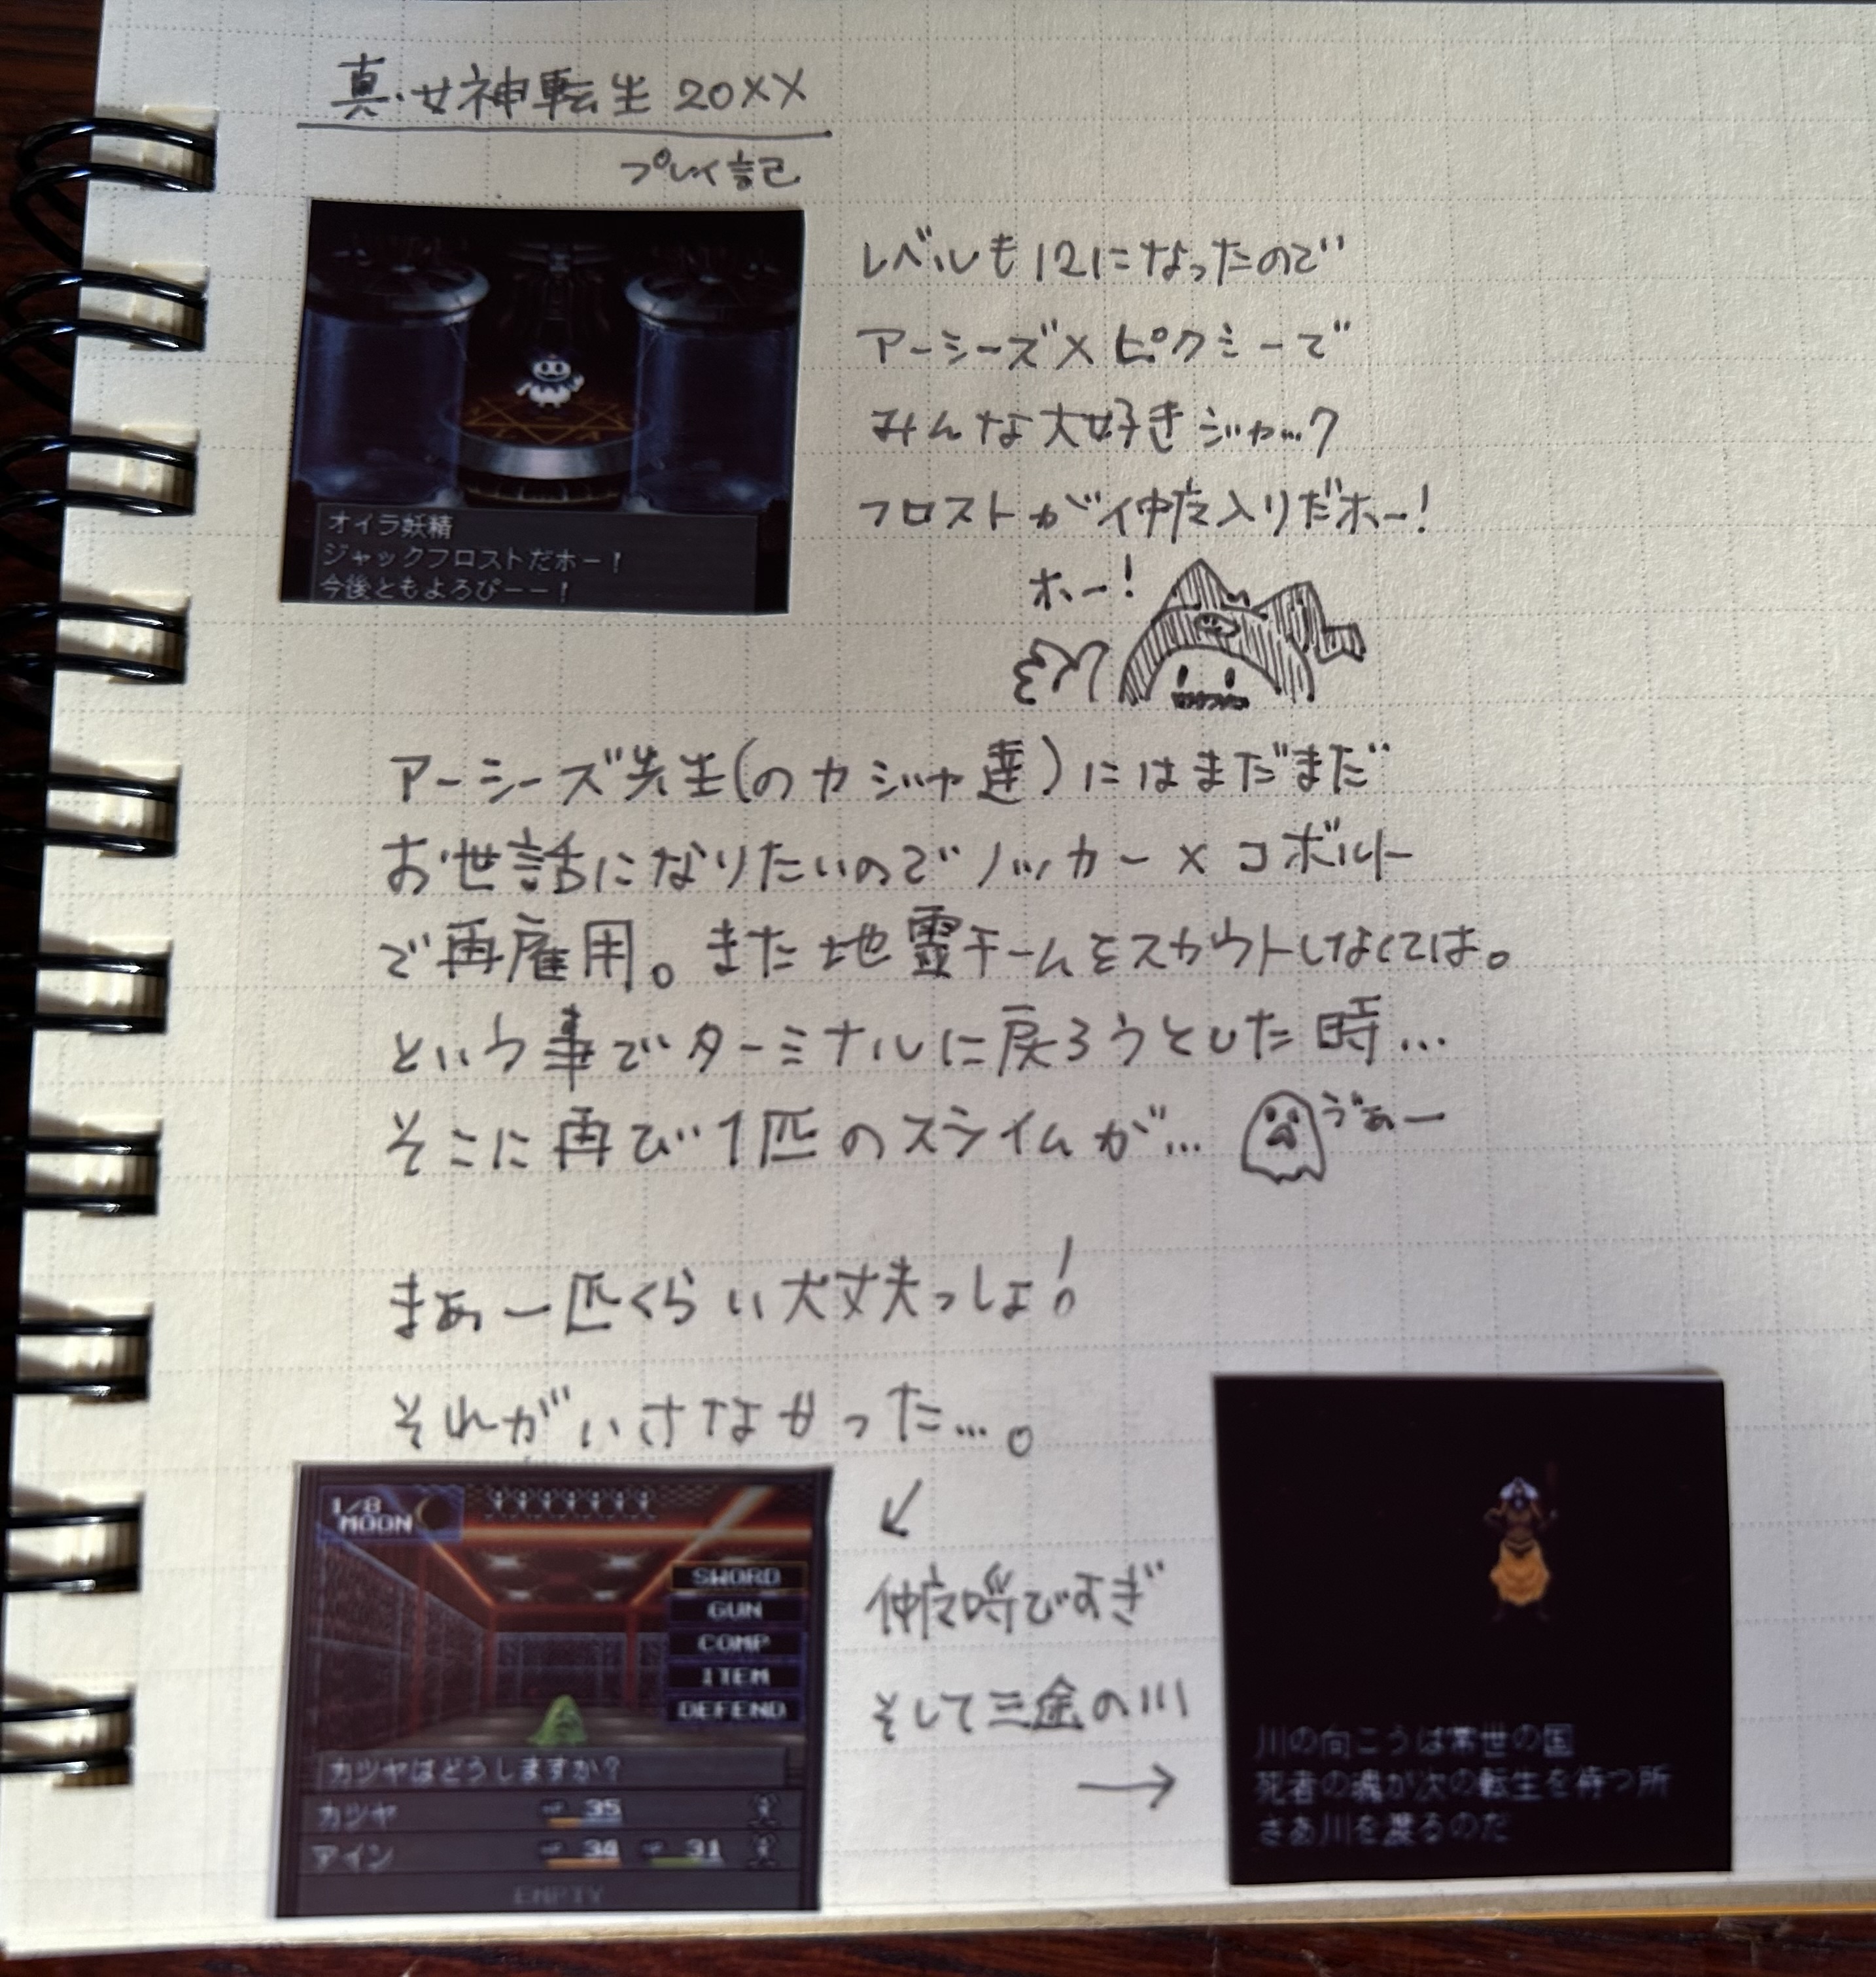 真・女神転生 20XX
プレイ記
オイラ妖精
ジャックフロストだホー！
今後ともよろぴーー！
レベルも12になったので
アーシーズ×ピクシーで
みんな大好きジャック
フロストが仲魔入りだホー！
ホー！
アーシーズ先生(のカジャ達)にはまだまだ
お世話になりたいのでノッカー×コボルト
で再雇用。また地霊チームをスカウトしなくては。
という事でターミナルに戻ろうとした時…
そこに再び1匹のスライムが…
ゔぁー
まぁ一匹くらい大丈夫っしょ！
それがいけなかった…。
1/8
MOON
SWORD
GUN
COMP
ITEM
DEFEND
カツヤはどうしますか?
カツヤ HP 35
アイン HP 34 MP 31
EMPTY
仲魔呼びすぎ
そして三途の川
川の向こうは常世の国
死者の魂が次の転生を待つ所
さあ川を渡るのだ